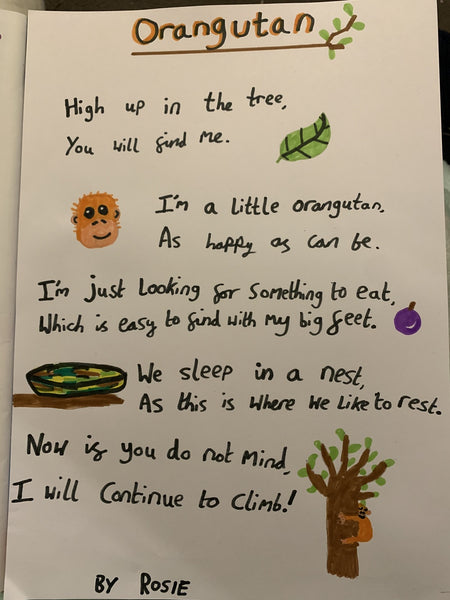 Orangutan
High up in the tree,
You will find me.
I'm a little orangutan,
As happy as can be.
I'm just looking for something to eat,
Which is easy to find with my big feet.
We sleep in a nest,
As this is where we like to rest.
Now if you do not mind,
I will continue to climb!
BY ROSIE